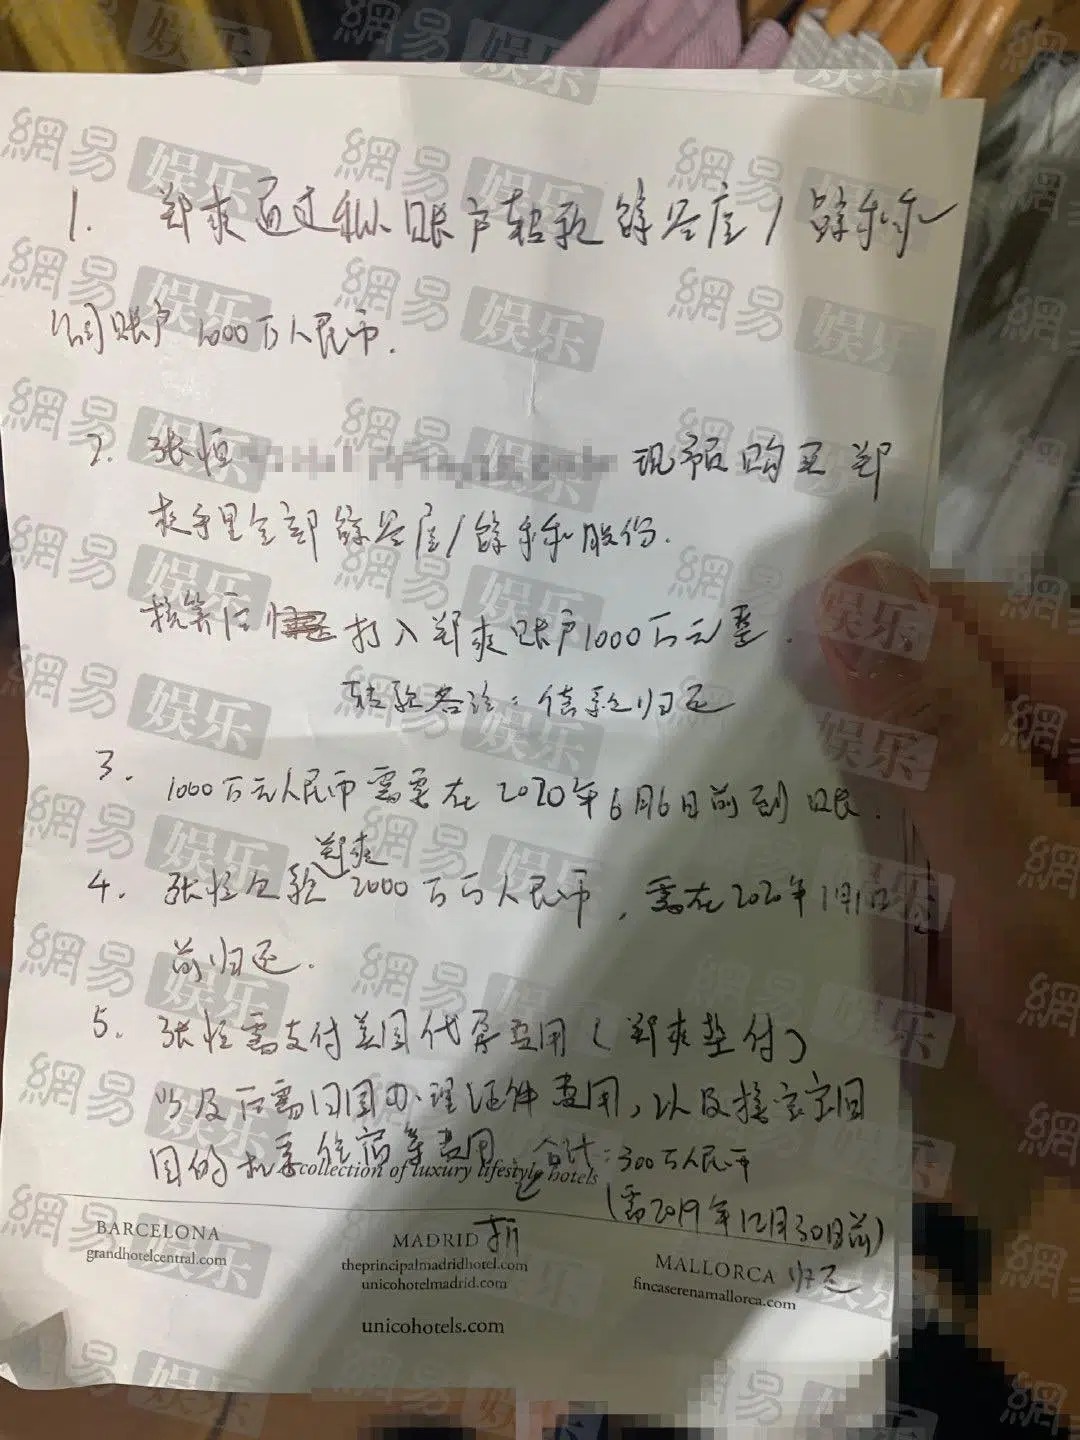 1. 郑爽通过私人账户转款馀谷度/馀利乐
公司账户1000万人民币.
2. 张恒 现预购买郑
爽手里全部馀谷度/馀 股份.
核算后 打入郑爽账户1000万元整.
转款备注:借款归还
3. 1000万元人民币需要在2020年6月6日前到账.
郑爽
4. 张恒欠款2000万 人民币,需在2020年1月1日
前归还.
5. 张恒需支付美国代孕费用(郑爽垫付)
以及后需回国办理证件费用,以及接宝宝回
国的机票住宿等费用 合计:300万人民币
(需2019年12月30日前)
归还
collection of luxury lifestyle hotels
BARCELONA
grandhotelcentral.com
MADRID
theprincipalmadridhotel.com
unicohotelmadrid.com
MALLORCA
fincaserenamallorca.com
unicohotels.com
網易娱乐